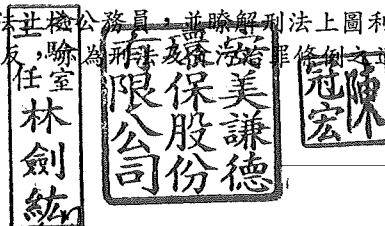 法上公務員，並瞭解刑法上圖利
反，亦為刑法及貪污治罪條例之
檢驗室
主任
林劍紘
美謙德
保股份
有限公司
陳
冠宏